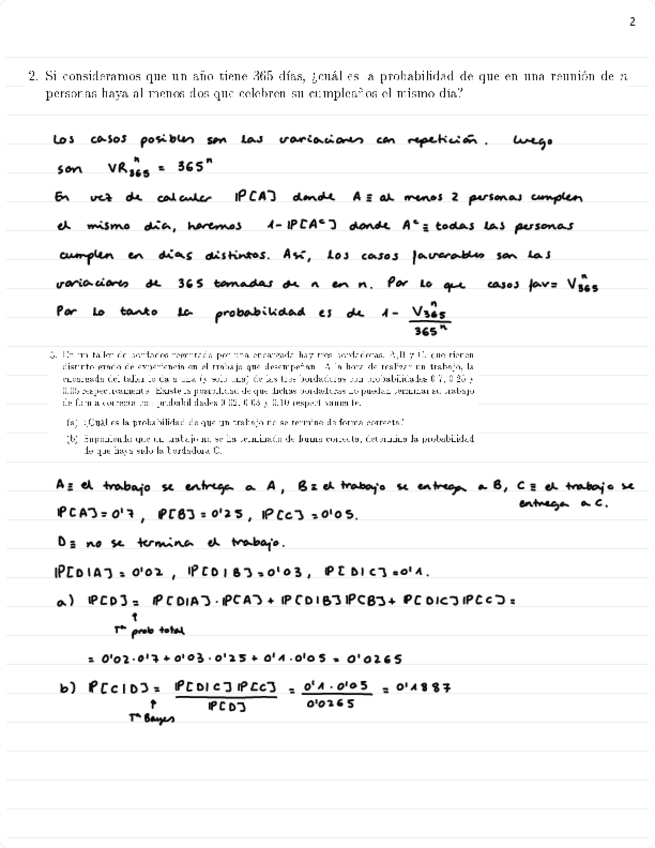 2
2. Si consideramos que un año tiene 365 días, ¿cuál es la probabilidad de que en una reunión de n
personas haya al menos dos que celebren su cumpleaños el mismo día?
Los casos posibles son las variaciones con repetición. Luego
son VR₃₆₅ⁿ = 365ⁿ
En vez de calcular IP[A] donde A ≡ al menos 2 personas cumplen
el mismo día, haremos 1-IP[Aᶜ] donde Aᶜ ≡ todas las personas
cumplen en días distintos. Así, los casos favorables son las
variaciones de 365 tomadas de n en n. Por lo que casos fav = V₃₆₅ⁿ
Por lo tanto la probabilidad es de 1 - V₃₆₅ⁿ / 365ⁿ
En un taller de bordados regentado por una encargada hay tres bordadoras, A, B y C, que tienen
distinto grado de experiencia en el trabajo que desempeñan. A la hora de realizar un trabajo, la
encargada del taller lo da a una (y solo una) de las tres bordadoras con probabilidades 0.7, 0.25 y
0.05 respectivamente. Existe la posibilidad de que dichas bordadoras no puedan terminar su trabajo
de forma correcta con probabilidades 0.02, 0.03 y 0.10 respectivamente.
(a) ¿Cuál es la probabilidad de que un trabajo no se termine de forma correcta?
(b) Suponiendo que un trabajo no se ha terminado de forma correcta, determina la probabilidad
de que haya sido la bordadora C.
A ≡ el trabajo se entrega a A, B ≡ el trabajo se entrega a B, C ≡ el trabajo se
entrega a C.
IP[A] = 0'7, IP[B] = 0'25, IP[C] = 0'05.
D ≡ no se termina el trabajo.
IP[D|A] = 0'02, IP[D|B] = 0'03, IP[D|C] = 0'1.
a) IP[D] = IP[D|A]·IP[A] + IP[D|B]IP[B] + IP[D|C]IP[C] =
↑
Tᵐ prob total
= 0'02·0'7 + 0'03·0'25 + 0'1·0'05 = 0'0265
b) IP[C|D] = IP[D|C]IP[C] / IP[D] = 0'1·0'05 / 0'0265 = 0'1887
↑
Tᵐ Bayes